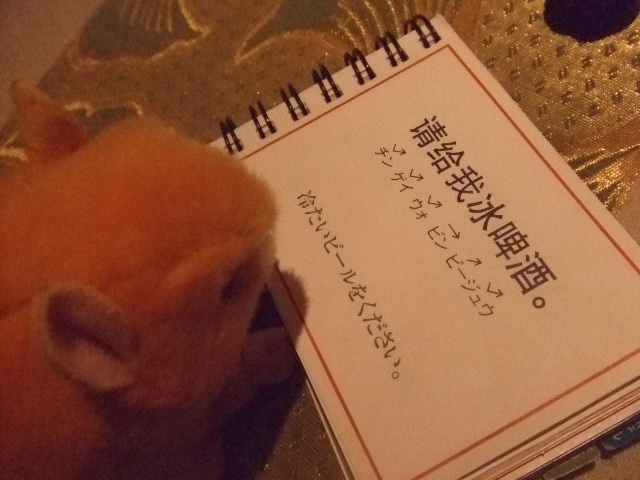 请给我冰啤酒。
チン ゲイ ウォ ビン ピージュウ
冷たいビールをください。